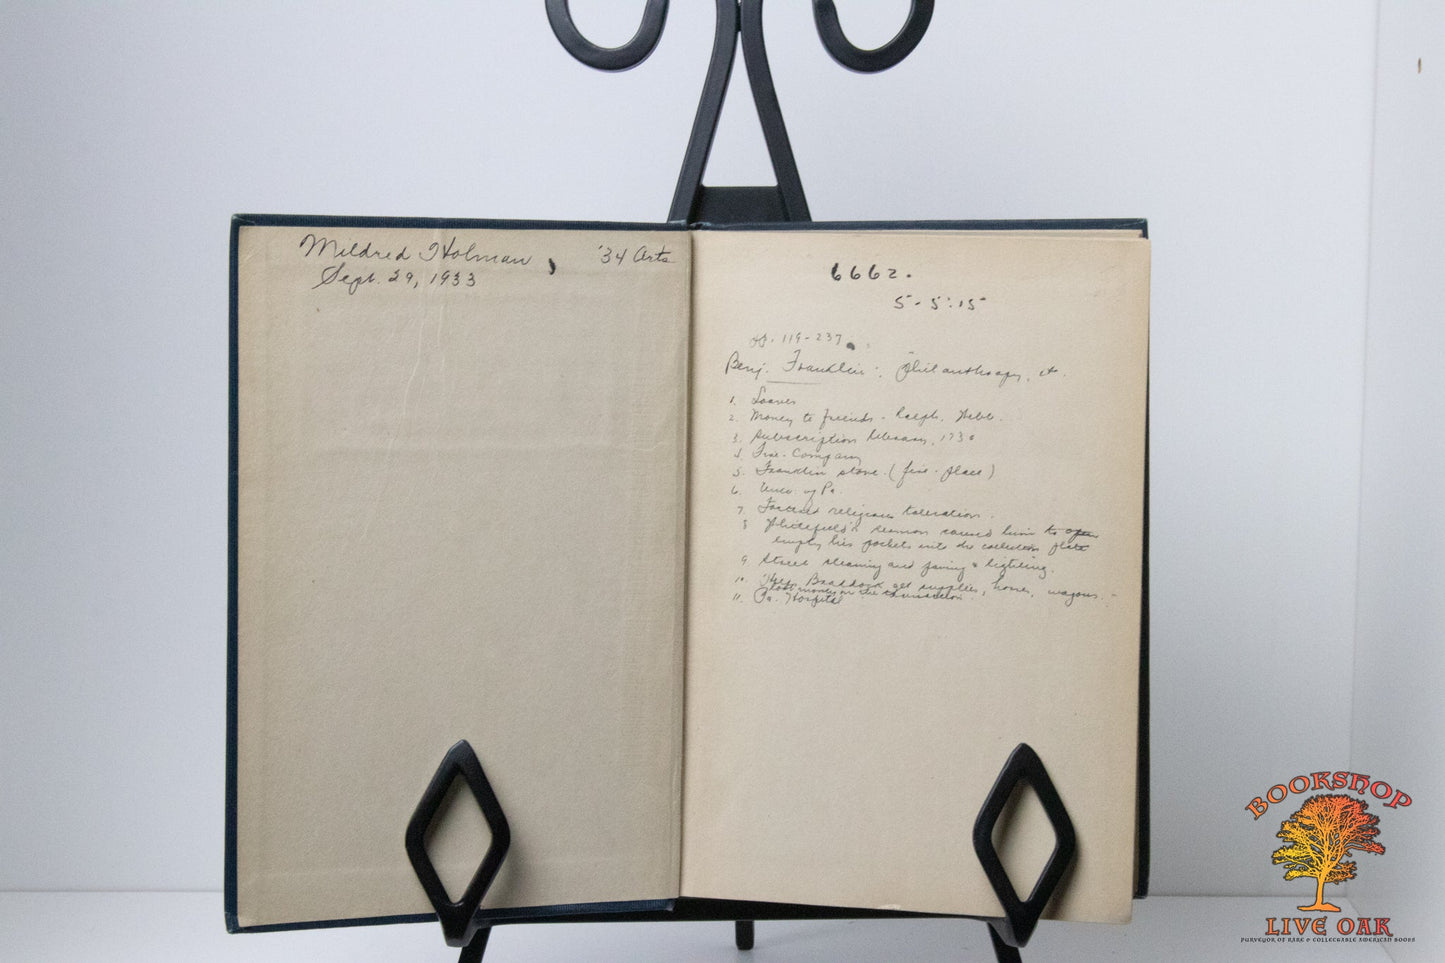 Mildred Holman, '34 Arts
Sept. 29, 1933
6662.
5-5:15
pp. 119-237
Benj. Franklin: Philanthropy, et
1. Loaves
2. Money to friends - Ralph, Webb.
3. Subscription Library, 1730
4 Fire-Company
5. Franklin stove. (fire-place)
6. Univ. of Pa.
7. religious toleration.
8 Whitefield's sermon caused him to
empty his pockets into the collection plate
9. Street cleaning and paving & lighting.
10. Help Braddock get supplies, horses, wagons -
lost money on the transaction.
11. Pa. Hospital
BOOKSHOP
LIVE OAK
PURVEYOR OF RARE & COLLECTABLE AMERICAN BOOKS